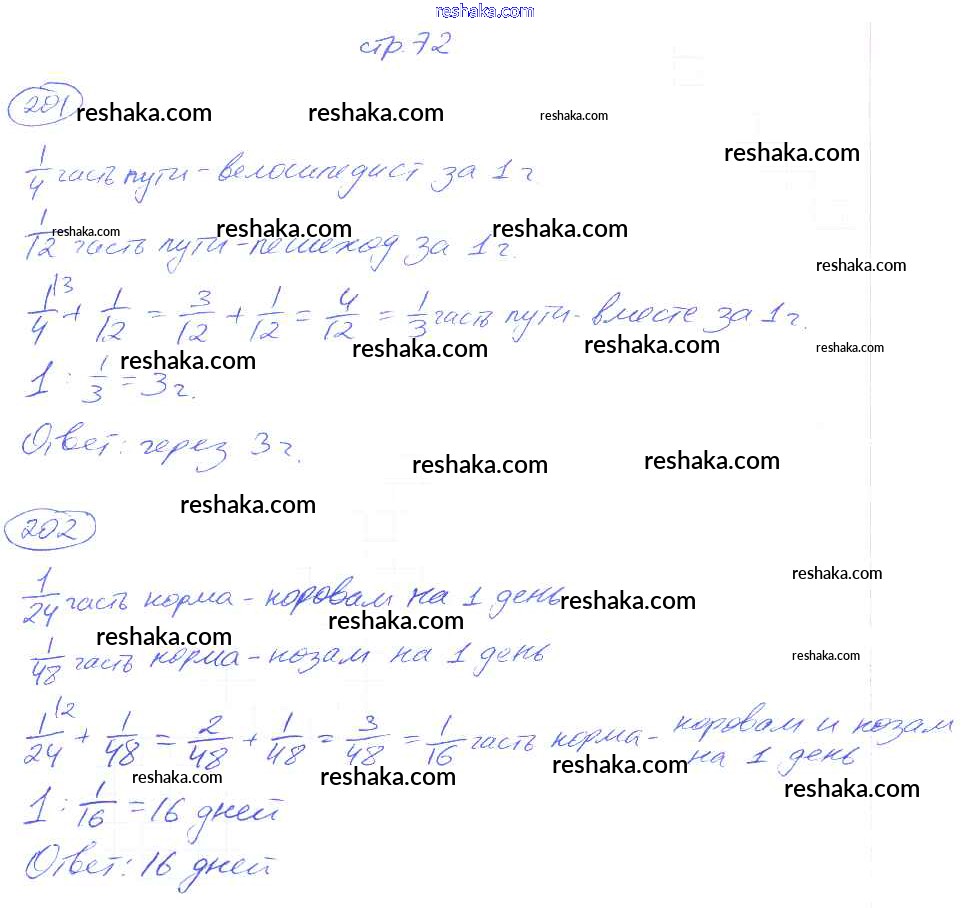 reshaka.com
стр. 72
201 reshaka.com reshaka.com reshaka.com
reshaka.com
1/4 часть пути - велосипедист за 1 ч.
1/12 часть пути - пешеход за 1 ч.
reshaka.com reshaka.com reshaka.com
reshaka.com
1/4 \3 + 1/12 = 3/12 + 1/12 = 4/12 = 1/3 часть пути - вместе за 1 ч.
reshaka.com reshaka.com reshaka.com reshaka.com
1 : 1/3 = 3 ч.
Ответ: через 3 ч.
reshaka.com reshaka.com
reshaka.com
202
reshaka.com
1/24 часть корма - коровам на 1 день
reshaka.com
reshaka.com reshaka.com
1/48 часть корма - козам на 1 день
reshaka.com
1/24 \2 + 1/48 = 2/48 + 1/48 = 3/48 = 1/16 часть корма - коровам и козам
на 1 день
reshaka.com reshaka.com reshaka.com reshaka.com
1 : 1/16 = 16 дней
Ответ: 16 дней